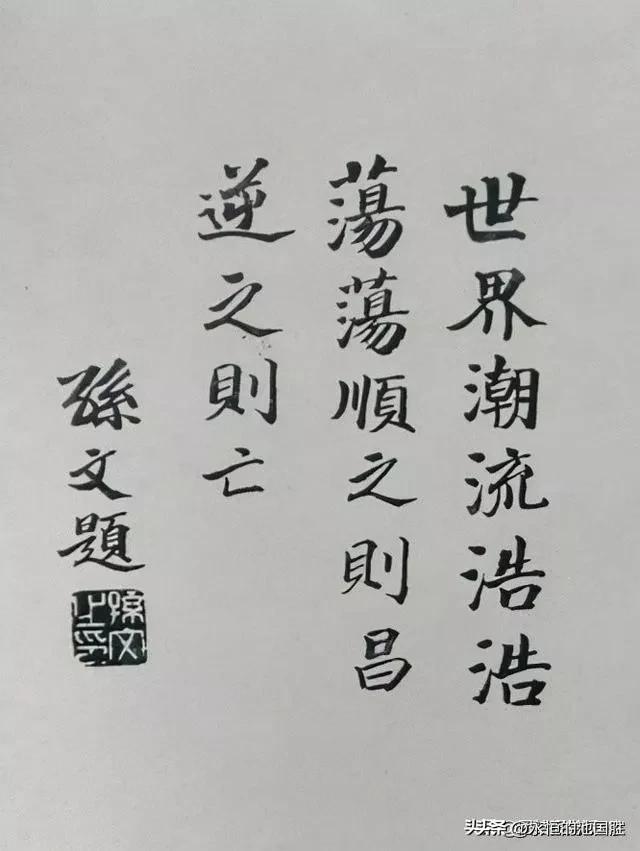 世界潮流浩浩
蕩蕩順之則昌
逆之則亡
孫文題
孫文之印
头条@永恒的池国胜